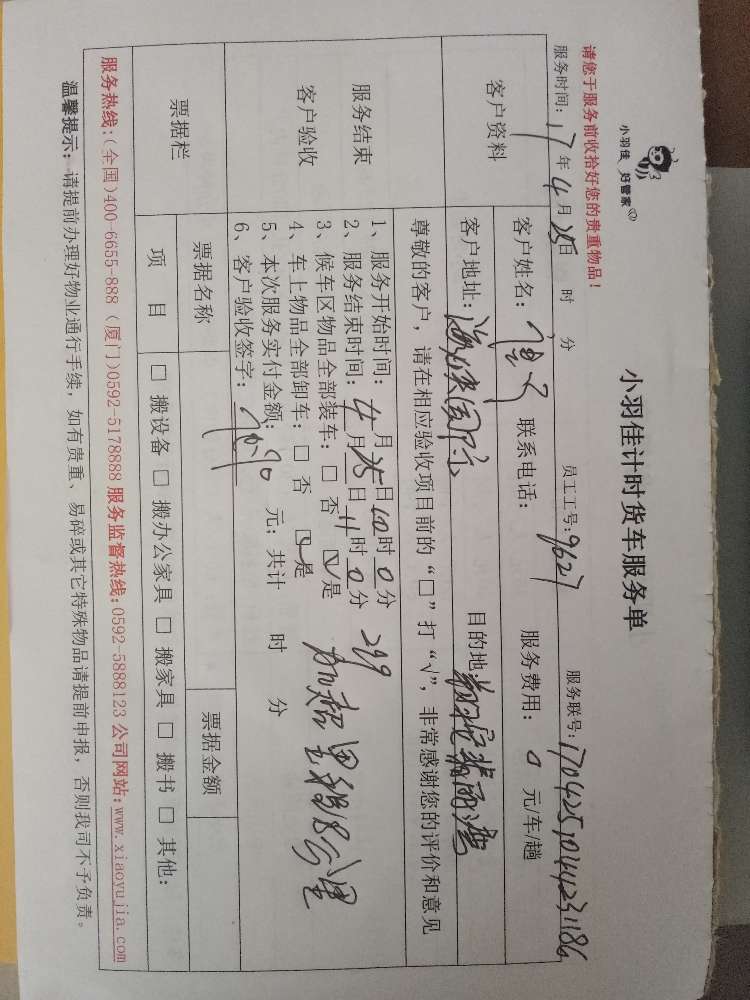 小羽佳 好管家
小羽佳计时货车服务单
请您于服务前收拾好您的贵重物品！
服务时间：17年4月25日 时 分 员工工号：9627 服务联号：1704251044231186
客户资料
客户姓名： 联系电话： 服务费用：0 元/车/趟
客户地址： 目的地
尊敬的客户，请在相应验收项目前的“□”打“√”，非常感谢您的评价和意见
服务结束
客户验收
1、服务开始时间：4月25日10时0分 299
2、服务结束时间：4月25日11时0分
3、候车区物品全部装车：□ 否 ☑是
4、车上物品全部卸车：□ 否 ☑是
5、本次服务实付金额： 元；共计 时 分
6、客户验收签字：
票据栏
票据名称 票据金额
项 目 □ 搬设备 □ 搬办公家具 □ 搬家具 □ 搬书 □ 其他：
服务热线：(全国)400-6655-888 (厦门)0592-5178888 服务监督热线：0592-5888123 公司网站：www.xiaoyujia.com
温馨提示：请提前办理好物业通行手续，如有贵重、易碎或其它特殊物品请提前申报，否则我司不予负责。